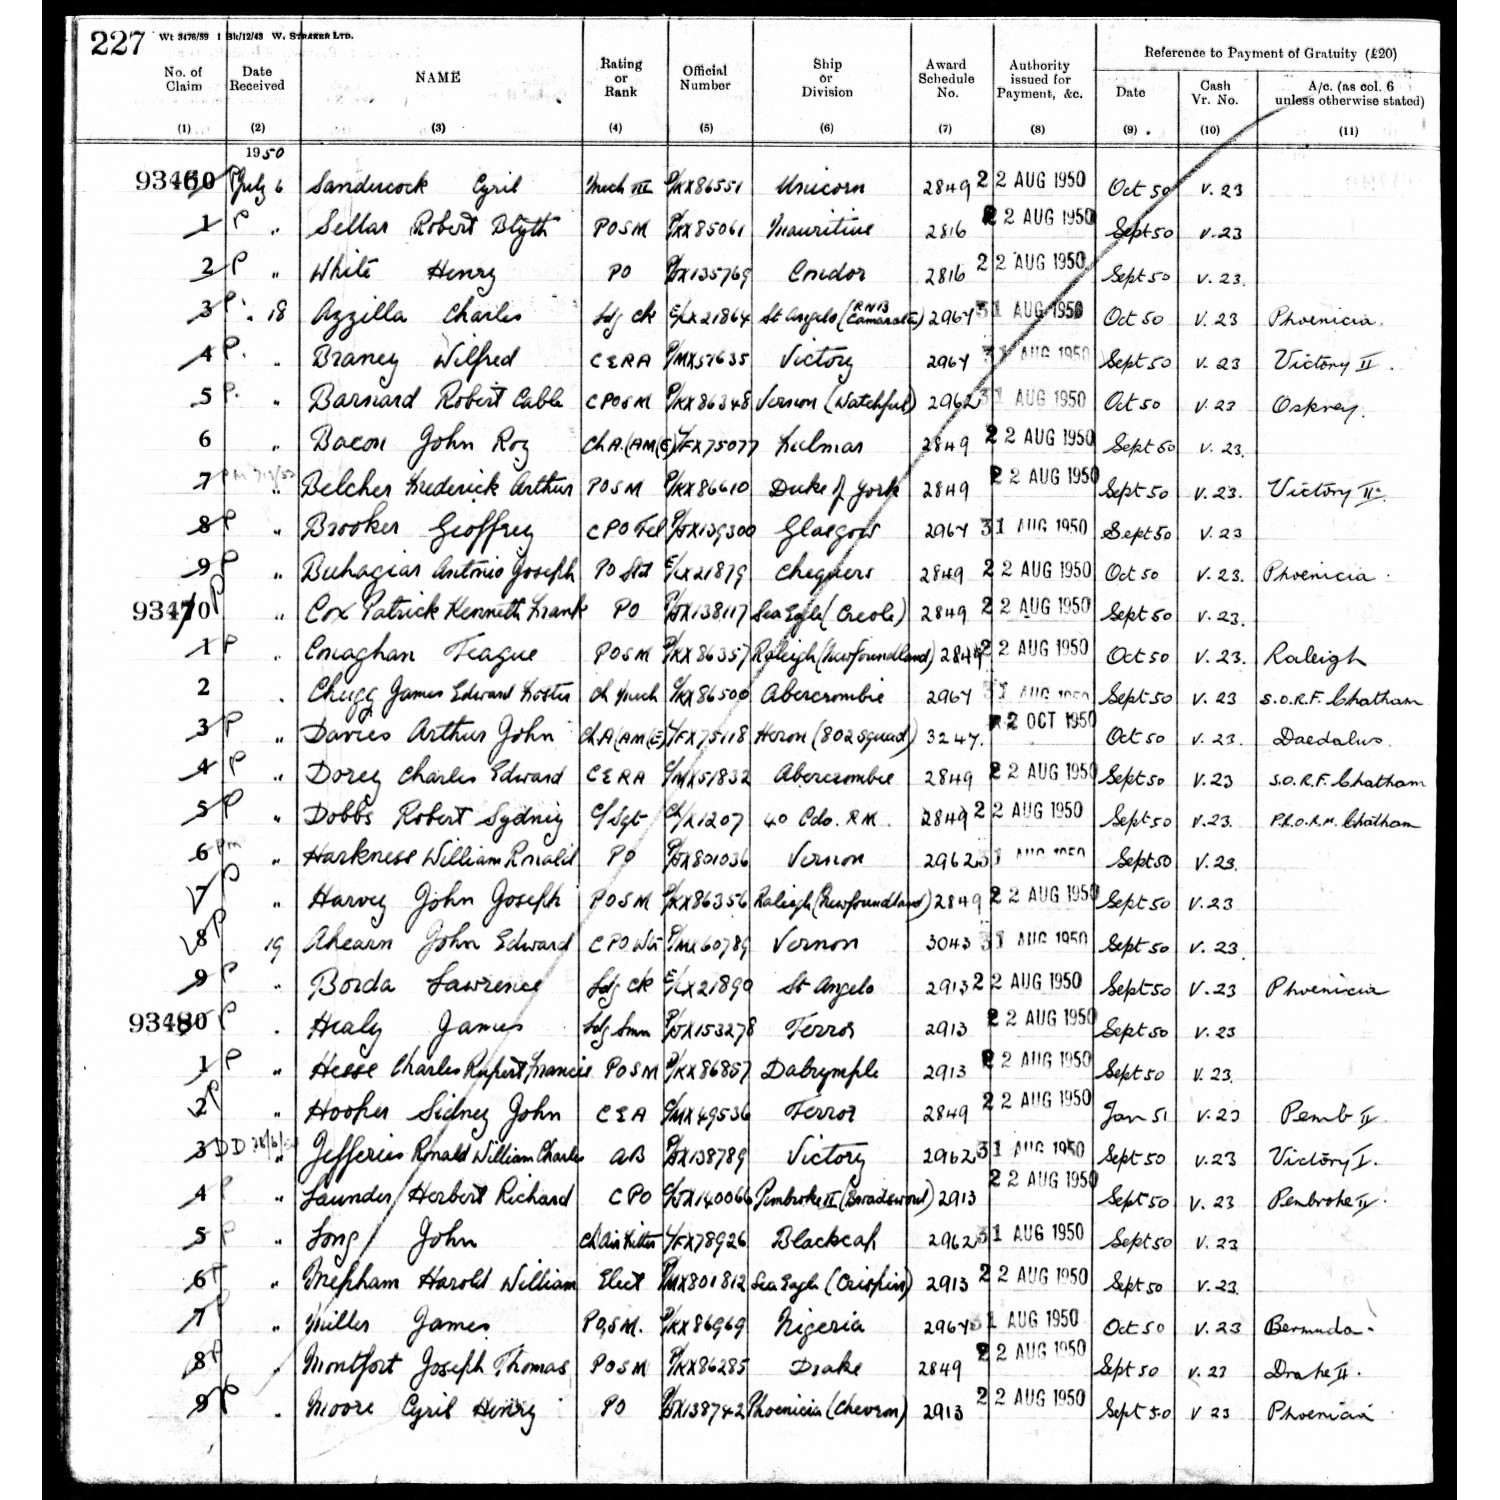 227 Wt 3476/59 1 Bk/12/43 W. STRAKER LTD.
Reference to Payment of Gratuity (£20)
No. of Claim Date Received NAME Rating or Rank Official Number Ship or Division Award Schedule No. Authority issued for Payment, &c. Date Cash Vr. No. A/c. (as col. 6 unless otherwise stated)
(1) (2) (3) (4) (5) (6) (7) (8) (9) (10) (11)
1950
93460 P July 6 Sandercock Cyril Mech III P/KX86551 Unicorn 2849 22 AUG 1950 Oct 50 V. 23
1 P " Sellar Robert Blyth POSM P/KX85061 Mauritius 2816 22 AUG 1950 Sept 50 V. 23
2 P " White Henry PO P/JX135769 Condor 2816 22 AUG 1950 Sept 50 V. 23.
3 P " 18 Azzilla Charles Ldg Ck E/LX21864 St Angelo (RNB Camarata) 2967 31 AUG 1950 Oct 50 V. 23 Phoenicia.
4 P. " Braney Wilfred CERA P/MX57635 Victory 2967 31 AUG 1950 Sept 50 V. 23 Victory II.
5 P. " Barnard Robert Cable CPOSM P/KX86348 Vernon (Watchful) 2962 31 AUG 1950 Oct 50 V. 23 Osprey.
6 " Bacon John Roy Ch.A.(AM(E) L/FX75077 Fulmar 2849 22 AUG 1950 Sept 50 V. 23.
7 " Belcher Frederick Arthur POSM P/KX86610 Duke of York 2849 22 AUG 1950 Sept 50 V. 23. Victory II.
8 P " Brooker Geoffrey CPO Tel P/JX139300 Glasgow 2967 31 AUG 1950 Sept 50 V. 23
9 P " Buhagiar Antonio Joseph PO Std E/LX21879 Chequers 2849 22 AUG 1950 Oct 50 V. 23. Phoenicia.
93470 P " Cox Patrick Kenneth Frank PO P/JX138117 Sea Eagle (Creole) 2849 22 AUG 1950 Sept 50 V. 23.
1 P " Conaghan Teague POSM P/KX86357 Raleigh (Newfoundland) 2849 22 AUG 1950 Oct 50 V. 23. Raleigh
2 " Chugg James Edward Foster Ch Mech C/KX86500 Abercrombie 2967 31 AUG 1950 Sept 50 V. 23 S.O.R.F. Chatham
3 P " Davies Arthur John Ch.A(AM(E) L/FX75118 Heron (802 Squad) 3247. 2 OCT 1950 Oct 50 V. 23. Daedalus.
4 P " Dorey Charles Edward CERA C/MX51832 Abercrombie 2849 22 AUG 1950 Sept 50 V. 23 S.O.R.F. Chatham
5 P " Dobbs Robert Sydney C/Sgt Ch/X1207 40 Cdo. R.M. 2849 22 AUG 1950 Sept 50 V. 23. P.R.O.R.M. Chatham
6 pm " Harkness William Ronald PO P/JX801036 Vernon 2962 31 AUG 1950 Sept 50 V. 23.
7 P " Harvey John Joseph POSM P/KX86356 Raleigh (Newfoundland) 2849 22 AUG 1950 Sept 50 V. 23
8 P 19 Ahearn John Edward CPO Wtr P/MX60789 Vernon 3043 31 AUG 1950 Sept 50 V. 23.
9 P " Borda Lawrence Ldg Ck E/LX21890 St Angelo 2913 22 AUG 1950 Sept 50 V. 23 Phoenicia
93480 P " Healy James Ldg Smn P/JX153278 Terror 2913 22 AUG 1950 Sept 50 V. 23
1 P " Hesse Charles Rupert Francis POSM P/KX86857 Dalrymple 2913 22 AUG 1950 Sept 50 V. 23.
2 P " Hooper Sidney John CEA C/MX49536 Terror 2849 22 AUG 1950 Jan 51 V. 23 Pemb II.
3 DD " Jefferies Ronald William Charles AB P/JX138789 Victory 2962 31 AUG 1950 Sept 50 V. 23 Victory I.
4 P " Launder Herbert Richard CPO C/JX140066 Pembroke II (Broadsword) 2913 22 AUG 1950 Sept 50 V. 23 Pembroke II.
5 P " Long John Ch Air Fitter L/FX78926 Blackcap 2962 31 AUG 1950 Sept 50 V. 23
6 " Mepham Harold William Elect P/MX801812 Sea Eagle (Crispin) 2913 22 AUG 1950 Sept 50 V. 23.
7 " Miller James POSM. P/KX86969 Nigeria 2967 31 AUG 1950 Oct 50 V. 23 Bermuda.
8 P " Montfort Joseph Thomas POSM P/KX86285 Drake 2849 22 AUG 1950 Sept 50 V. 23 Drake II.
9 P " Moore Cyril Henry PO P/JX138742 Phoenicia (Chevron) 2913 22 AUG 1950 Sept 50 V 23 Phoenicia